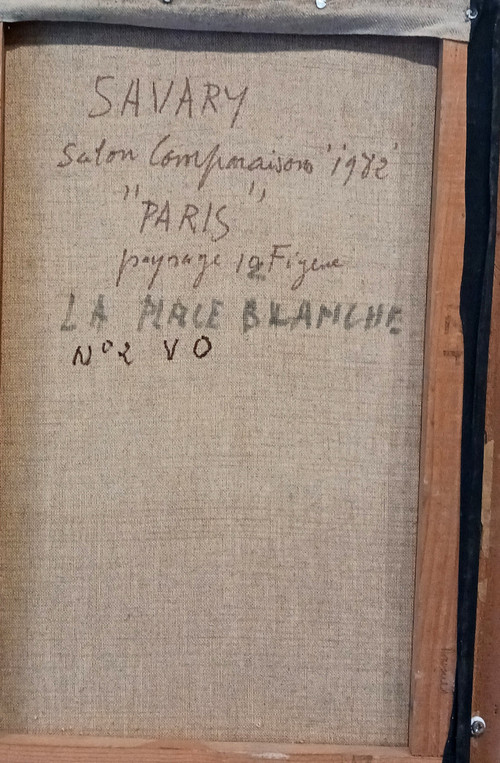 SAVARY
Salon Comparaisons "1982"
"PARIS"
paysage 12 Figure
LA PLACE BLANCHE
N°2 VO